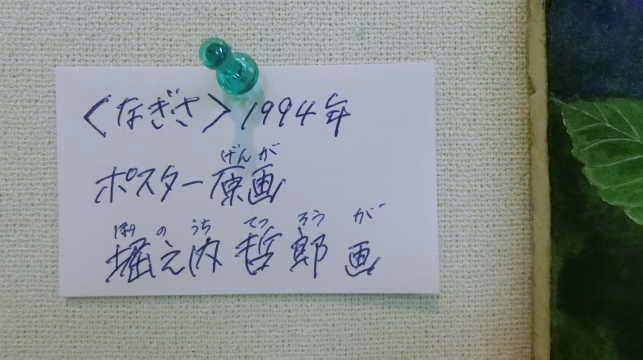 〈なぎさ〉1994年
げんが
ポスター原画
ほり の うち てつ ろう が
堀之内 哲郎 画